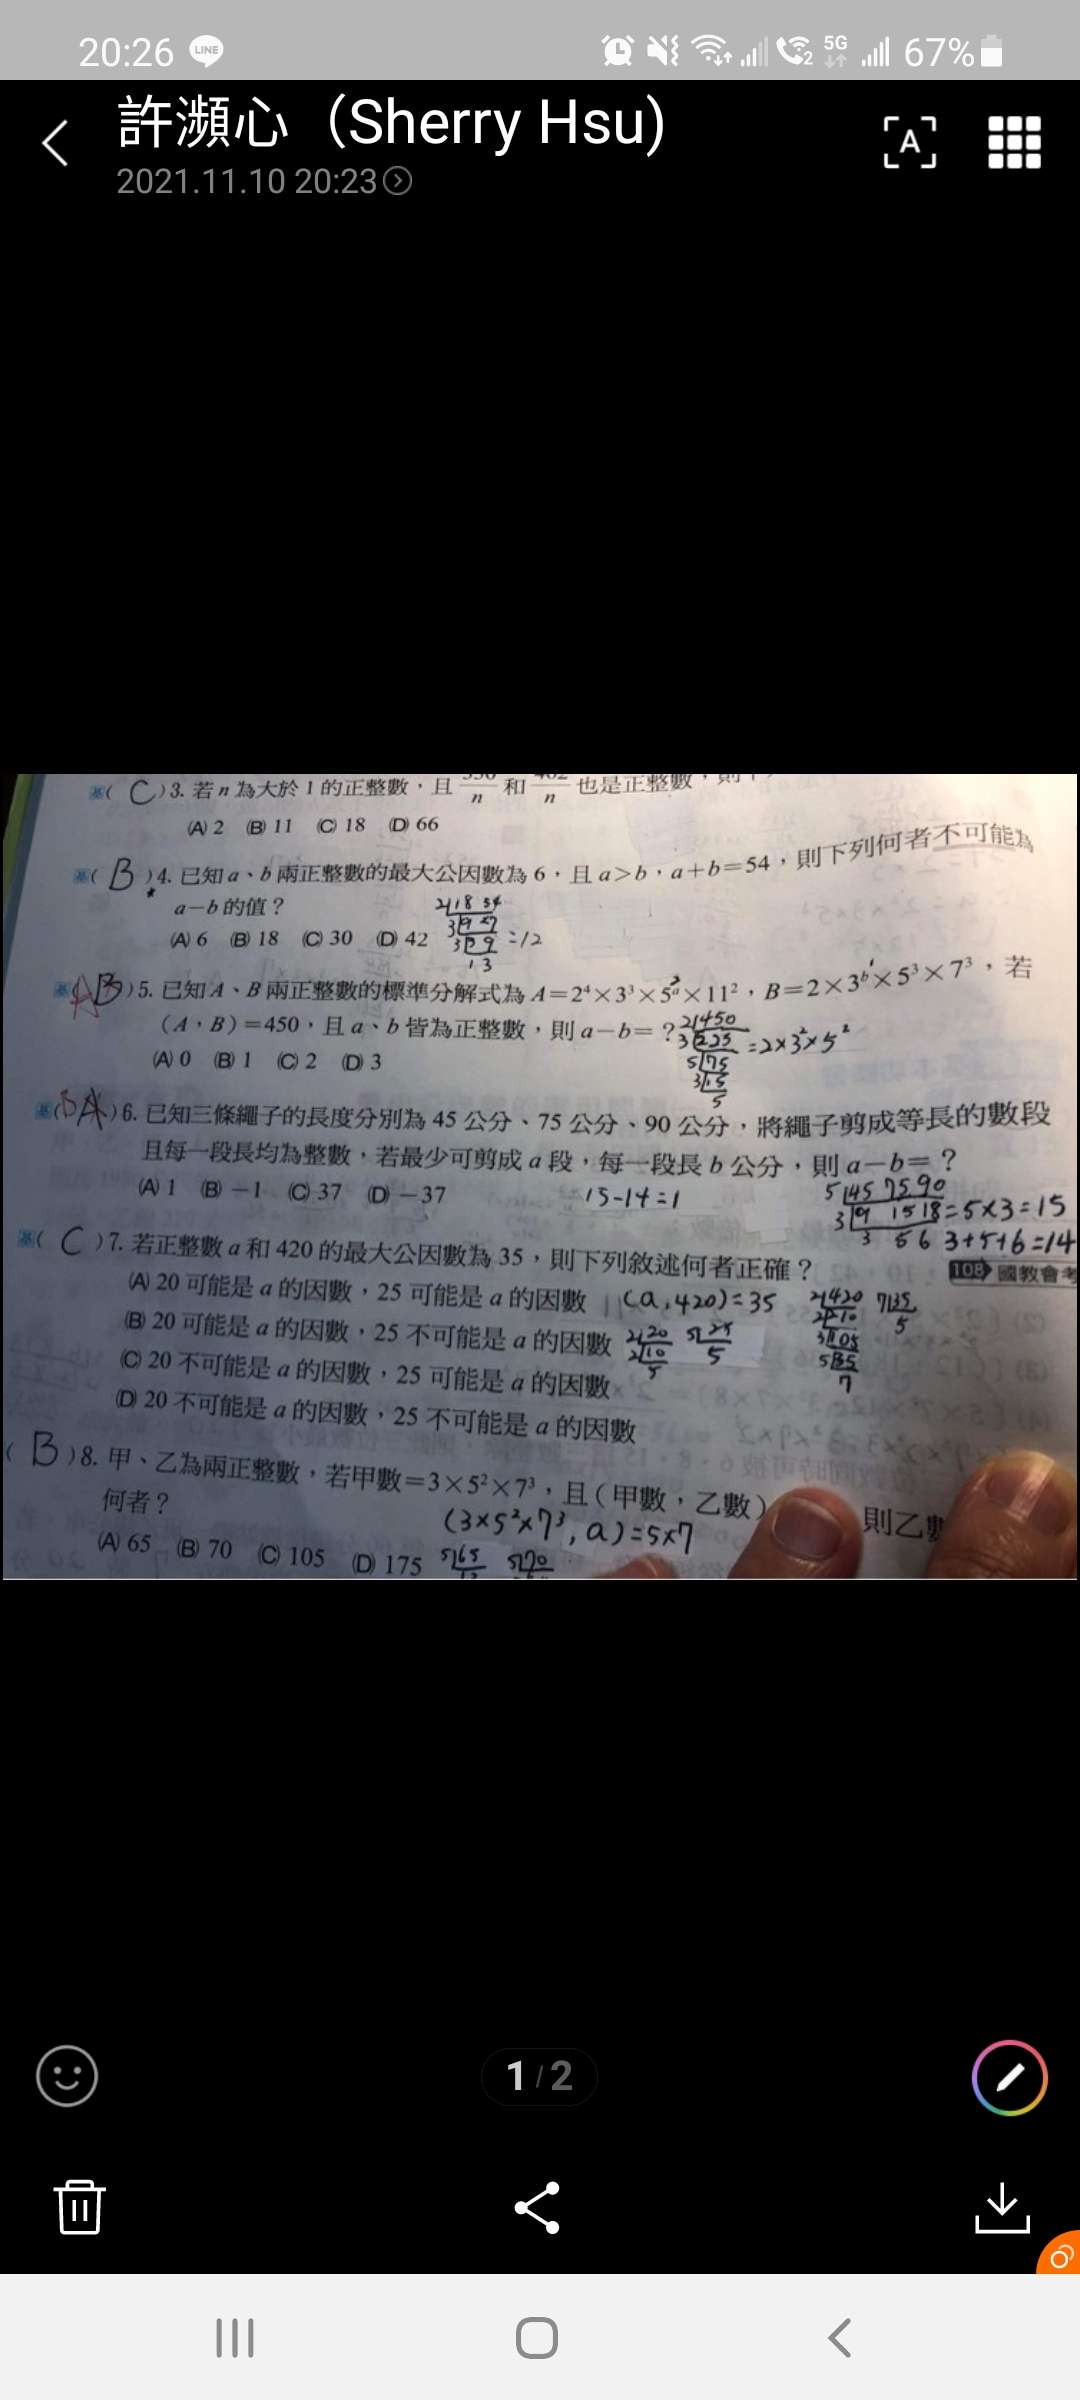 20:26 LINE 5G 67%
許瀕心（Sherry Hsu)
2021.11.10 20:23
基( C )3. 若 n 為大於 1 的正整數，且 n 和 n 也是正整數，則
(A) 2 (B) 11 (C) 18 (D) 66
基( B )4. 已知 a、b 兩正整數的最大公因數為 6，且 a>b，a+b=54，則下列何者不可能為
a-b 的值？
(A) 6 (B) 18 (C) 30 (D) 42
2 18 54
3 9 27
3 3 9 =12
1 3
基(AB)5. 已知 A、B 兩正整數的標準分解式為 A=2⁴×3³×5ᵃ×11²，B=2×3ᵇ×5³×7³，若
(A，B)=450，且 a、b 皆為正整數，則 a-b=？
(A) 0 (B) 1 (C) 2 (D) 3
2 450
3 225 =2×3²×5²
5 75
3 15
5
基(BA)6. 已知三條繩子的長度分別為 45 公分、75 公分、90 公分，將繩子剪成等長的數段
且每一段長均為整數，若最少可剪成 a 段，每一段長 b 公分，則 a-b=？
(A) 1 (B) -1 (C) 37 (D) -37
15-14=1
5 45 75 90
3 9 15 18 =5×3=15
3 5 6 3+5+6=14
基( C )7. 若正整數 a 和 420 的最大公因數為 35，則下列敘述何者正確？
108 國教會考
(A) 20 可能是 a 的因數，25 可能是 a 的因數
(B) 20 可能是 a 的因數，25 不可能是 a 的因數
(C) 20 不可能是 a 的因數，25 可能是 a 的因數
(D) 20 不可能是 a 的因數，25 不可能是 a 的因數
(a,420)=35
2 420 7 35
2 210 5
3 105
5 35
7
2 20 5 25
2 10 5
5
( B )8. 甲、乙為兩正整數，若甲數=3×5²×7³，且(甲數，乙數) 則乙數
何者？
(3×5²×7³, a)=5×7
(A) 65 (B) 70 (C) 105 (D) 175
5 65 5 70
1/2